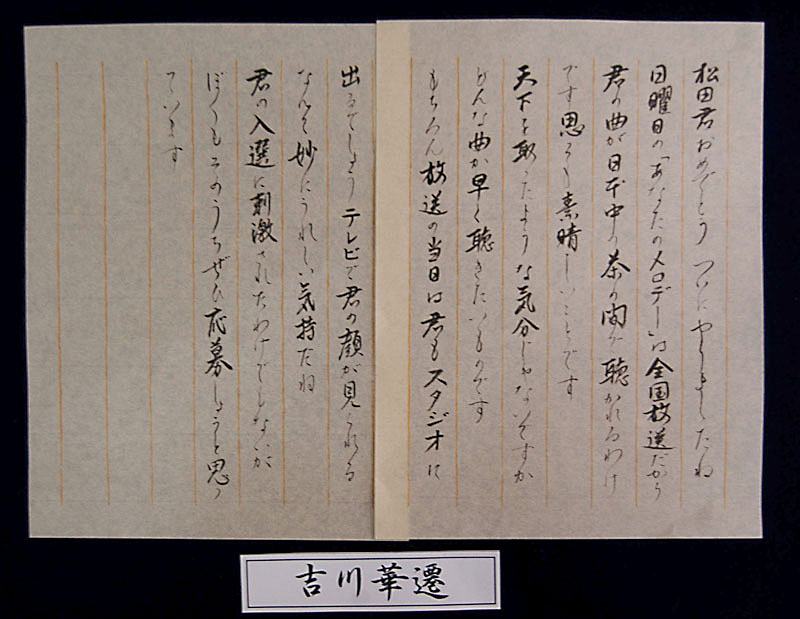 松田君おめでとう ついにやりましたね
日曜日の「あなたのメロデー」は全国放送だから
君の曲が日本中の茶の間で聴かれるわけ
です思っても素晴しいことです
天下を取ったような気分じゃないですか
どんな曲か早く聴きたいものです
もちろん放送の当日は君もスタジオに
出るでしょう テレビで君の顔が見られる
なんて妙にうれしい気持だね
君の入選に刺激されたわけでもないが
ぼくもそのうちぜひ応募しようと思っ
ています
吉川華遷